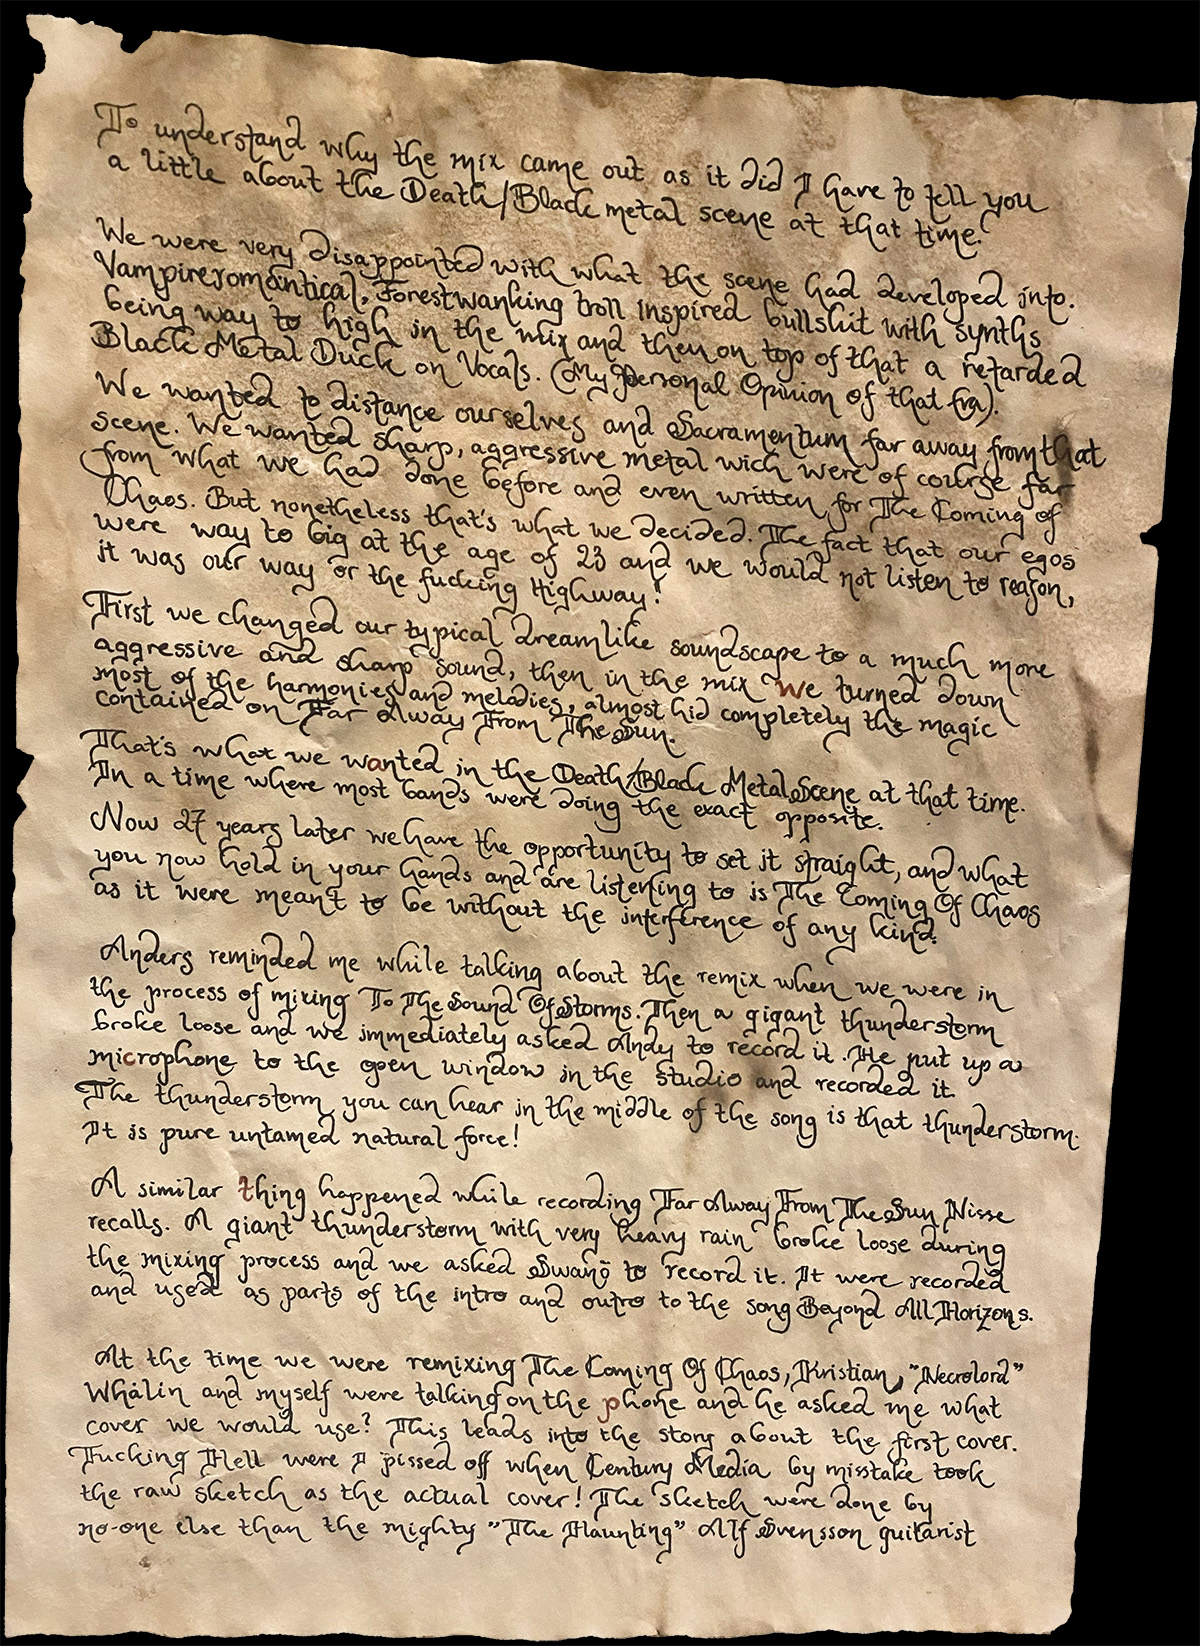 To understand why the mix came out as it did I have to tell you
a little about the Death/Black metal scene at that time.
We were very disappointed with what the scene had developed into.
Vampireromantical, Forestwanking troll inspired bullshit with synths
being way to high in the mix and then on top of that a retarded
Black Metal Duck on Vocals. (My Personal Opinion of that era).
We wanted to distance ourselves and Sacramentum far away from that
scene. We wanted sharp, aggressive metal wich were of course far
from what we had done before and even written for The Coming of
Chaos. But nonetheless that's what we decided. The fact that our egos
were way to big at the age of 23 and we would not listen to reason,
it was our way or the fucking Highway!
First we changed our typical dreamlike soundscape to a much more
aggressive and sharp sound, then in the mix we turned down
most of the harmonies and melodies, almost hid completely the magic
contained on Far Away From The Sun.
That's what we wanted in the Death/Black Metal Scene at that time.
In a time where most bands were doing the exact opposite.
Now 27 years later we have the opportunity to set it straight, and what
you now hold in your hands and are listening to is The Coming Of Chaos
as it were meant to be without the interference of any kind.
Anders reminded me while talking about the remix when we were in
the process of mixing To The Sound Of Storms. Then a gigant thunderstorm
broke loose and we immediately asked Andy to record it. He put up a
microphone to the open window in the studio and recorded it
The thunderstorm you can hear in the middle of the song is that thunderstorm.
It is pure untamed natural force!
A similar thing happened while recording Far Away From The Sun Nisse
recalls. A giant thunderstorm with very heavy rain broke loose during
the mixing process and we asked Swanö to record it. It were recorded
and used as parts of the intro and outro to the song Beyond All Horizons.
At the time we were remixing The Coming Of Chaos, Kristian, "Necrolord"
Whålin and myself were talking on the phone and he asked me what
cover we would use? This leads into the story about the first cover.
Fucking Hell were I pissed off when Century Media by misstake took
the raw sketch as the actual cover! The sketch were done by
no-one else than the mighty "The Haunting" Alf Svensson guitarist